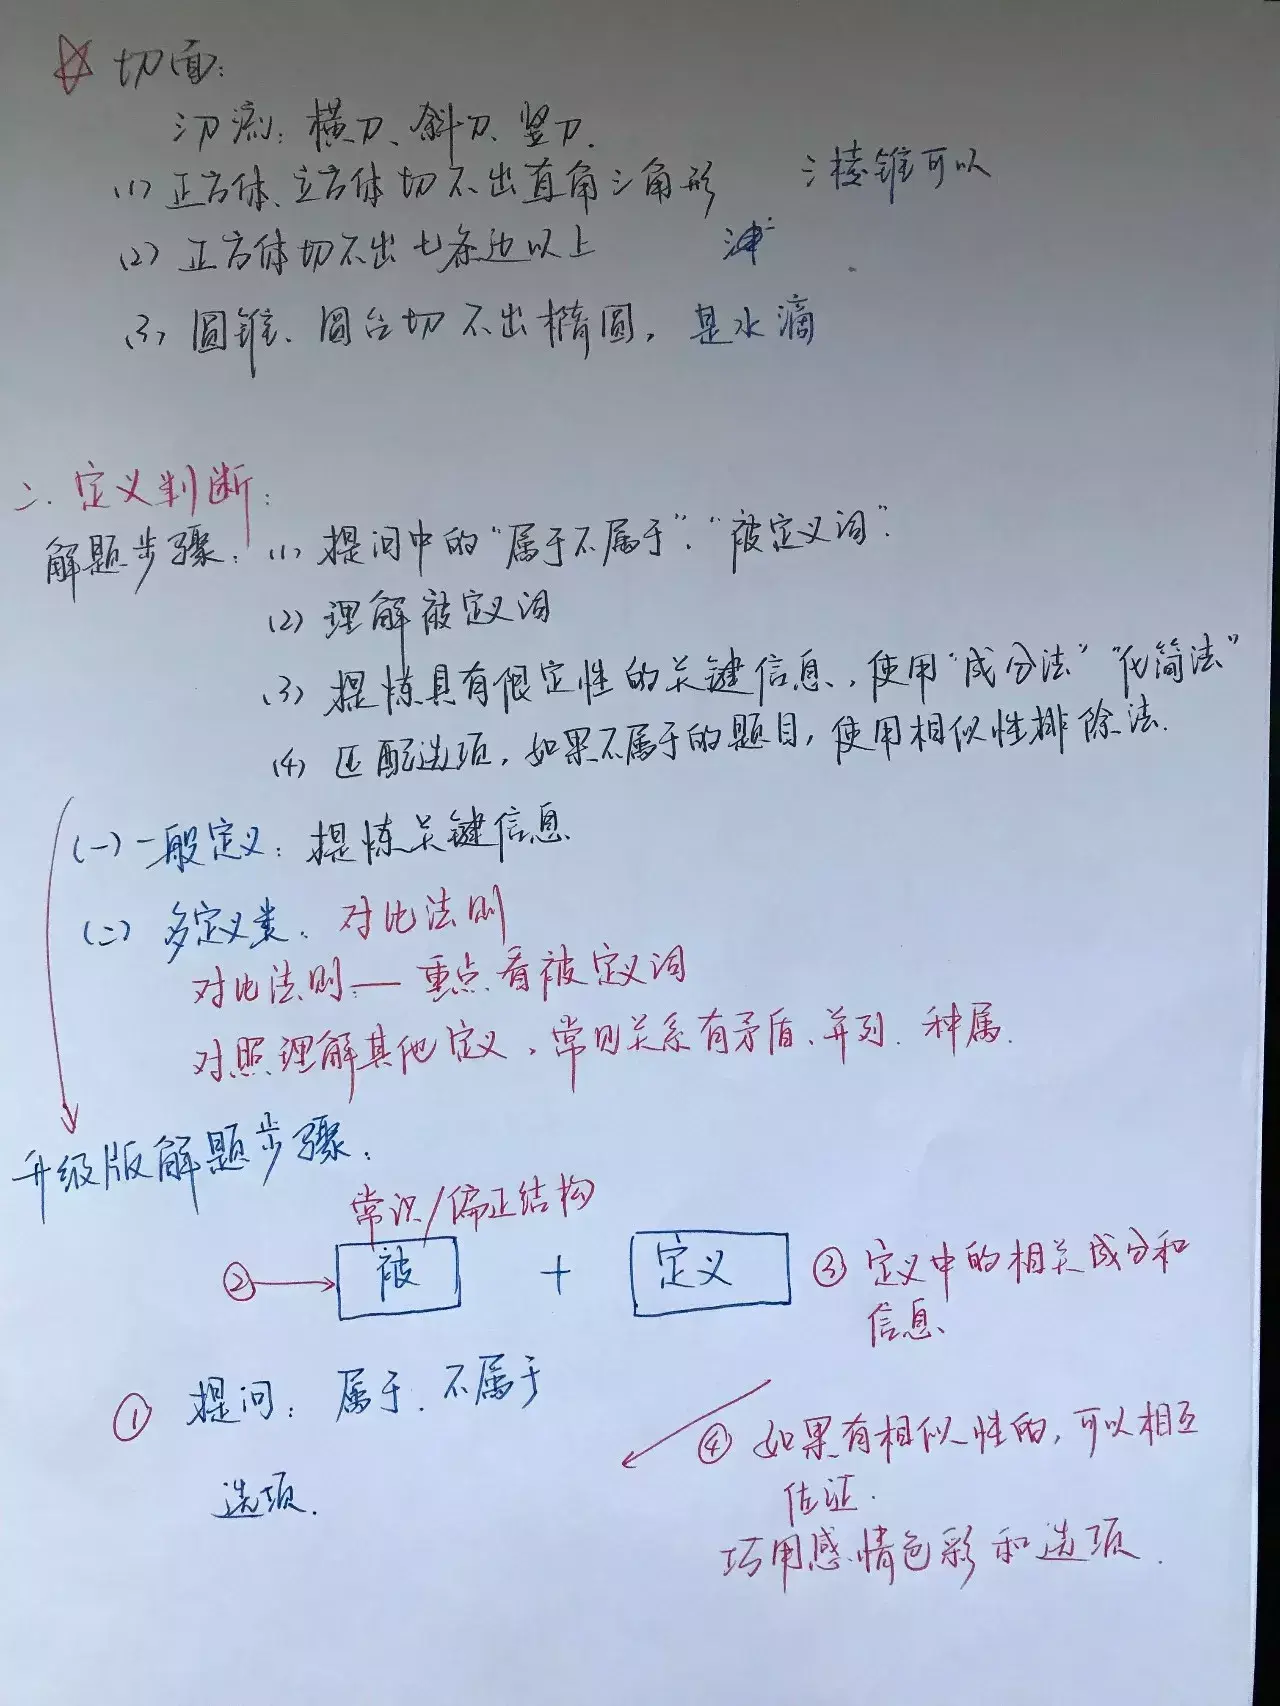 ☆ 切面:
三刀流: 横刀、斜刀、竖刀.
(1) 正方体、立方体切不出直角三角形 三棱锥可以
(2) 正方体切不出七条边以上
(3) 圆锥、圆台切不出椭圆, 是水滴
二. 定义判断:
解题步骤: (1) 提问中的“属于不属于”、“被定义词”.
(2) 理解被定义词
(3) 提炼具有限定性的关键信息, 使用“成分法”“化简法”
(4) 匹配选项, 如果不属于的题目, 使用相似性排除法.
(一) 一般定义: 提炼关键信息
(二) 多定义类: 对比法则
对比法则 — 重点看被定义词
对照理解其他定义, 常见关系有矛盾、并列、种属.
升级版解题步骤:
常识/偏正结构
② 被 + 定义 ③ 定义中的相关成分和
信息
① 提问: 属于、不属于
④ 如果有相似性的, 可以相互
佐证.
选项.
巧用感情色彩和选项.